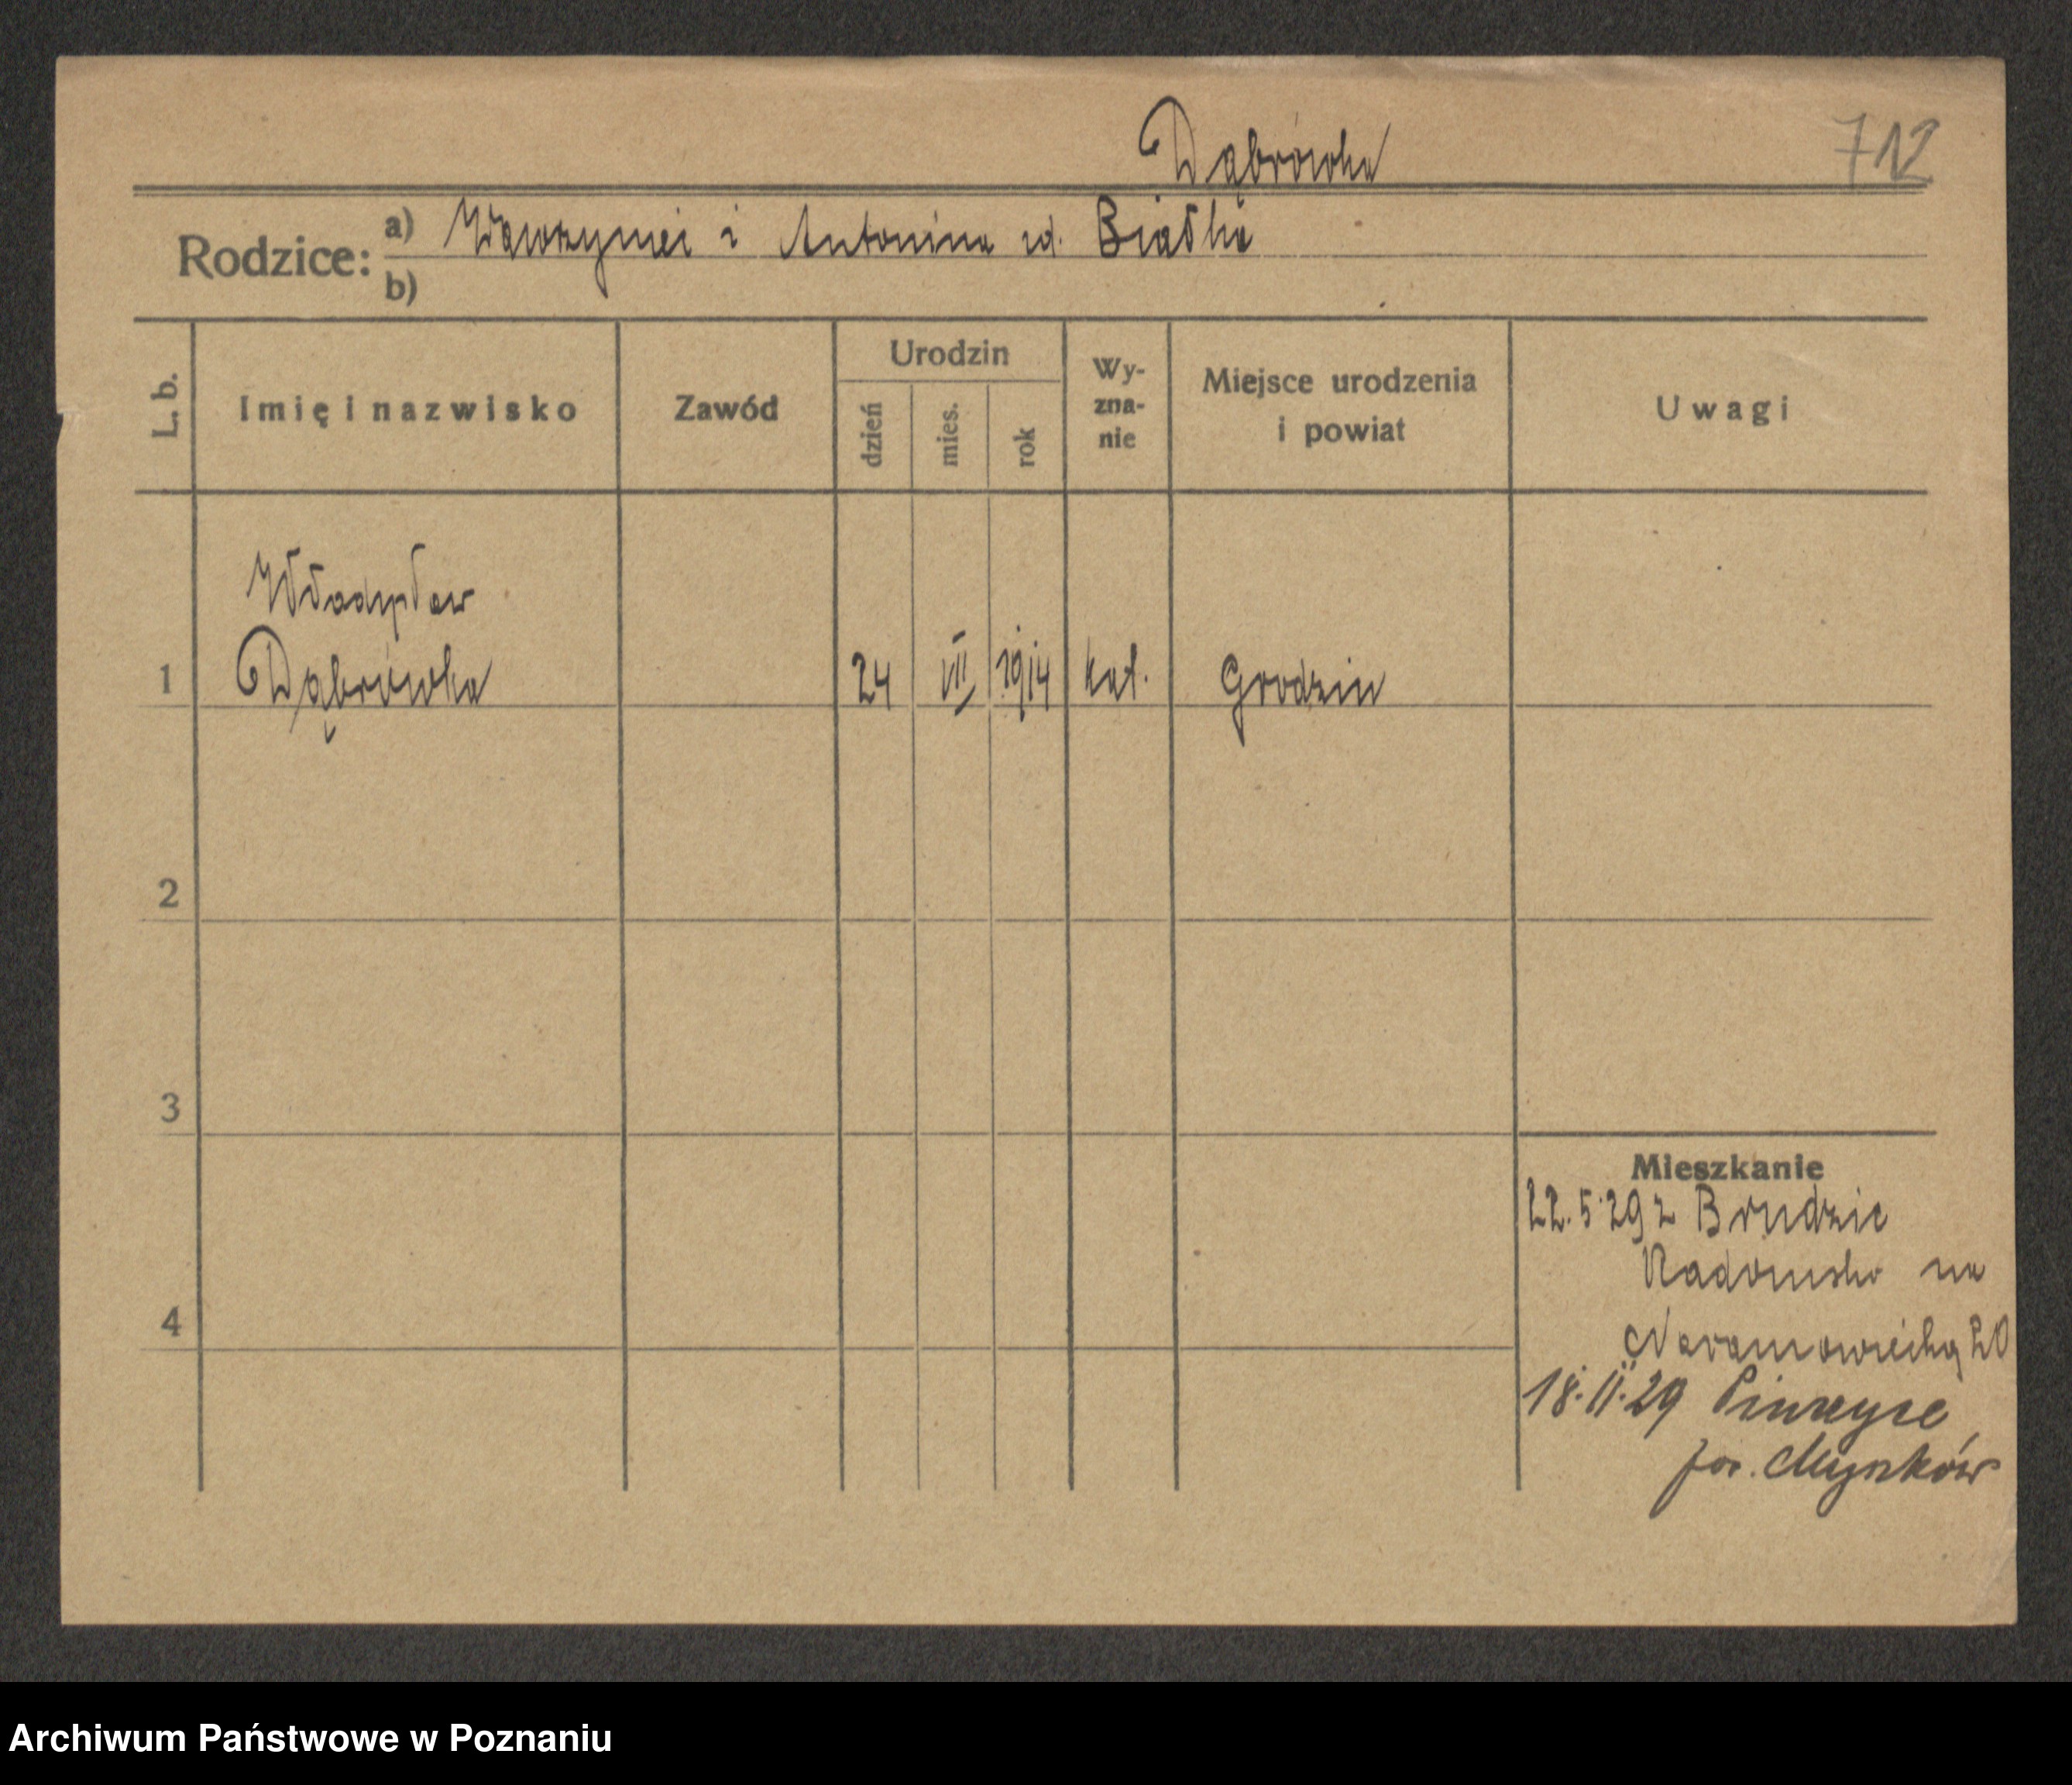 Dąbrówka
712
Rodzice: a) Wawrzyniec i Antonina zd. Białka
b)
L. b.
Imię i nazwisko
Zawód
Urodzin
dzień
mies.
rok
Wy-
zna-
nie
Miejsce urodzenia
i powiat
Uwagi
Władysław
1 Dąbrówka 24 VII 1914 kat. Grodzin
2
3
4
Mieszkanie
22.5.29 z Brudzic
Radomsko na
Naramowicką 20
18.II.29
pow.
Archiwum Państwowe w Poznaniu